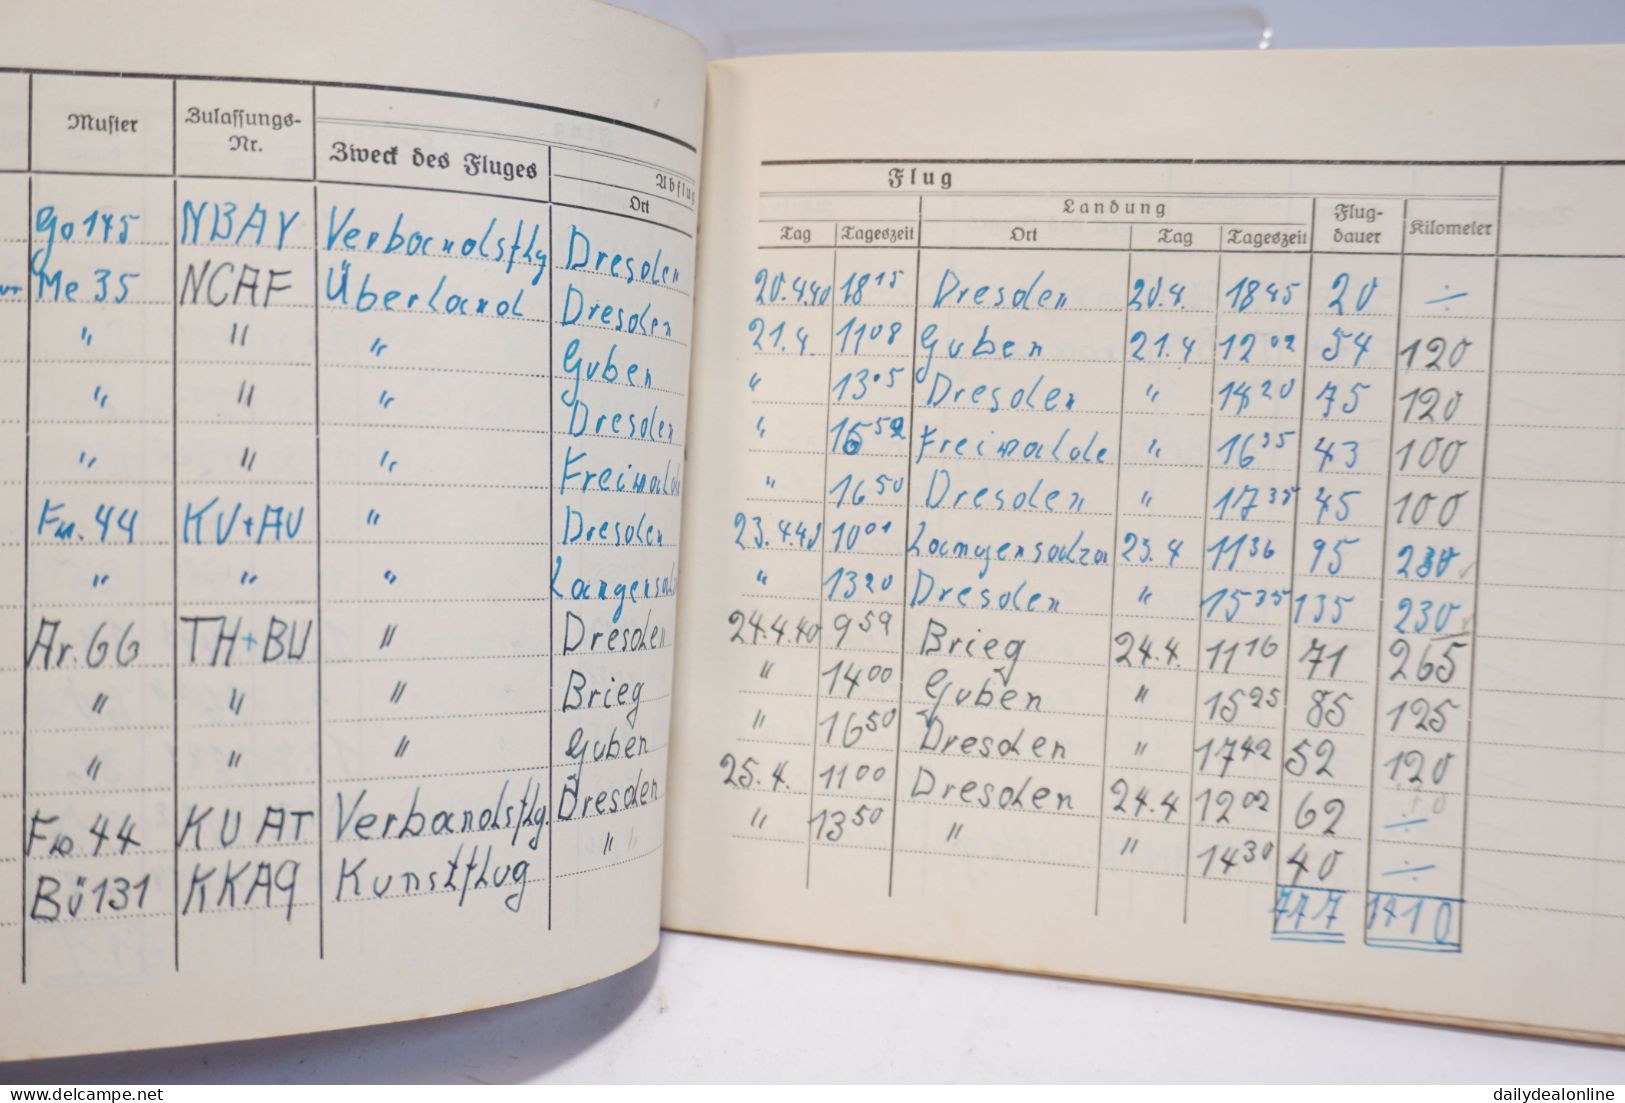 Muster Zulassungs-Nr. Zweck des Fluges Abflug Ort
Go 145 NBAY Verbandsflg Dresden
Me 35 NCAF Überland Dresden
" " " Guben
" " " Dresden
" " " Freiwalde
Fw. 44 KU+AU " Dresden
" " " Langensalz
Ar. 66 TH+BU " Dresden
" " " Brieg
" " " Guben
Fw 44 KU AT Verbandsflg. Dresden
Bü 131 KKAQ Kunstflug " "
Flug
Landung
Tag Tageszeit Ort Tag Tageszeit Flug-dauer Kilometer
20.4.40 18 15 Dresden 20.4. 18 45 20 ÷
21.4. 11 08 Guben 21.4 12 02 54 120
" 13 05 Dresden " 14 20 75 120
" 52 Freiwalde " 16 35 43 100
" 16 50 Dresden " 17 35 45 100
23.4.40 10 01 Langensalza 23.4 11 36 95 230
" 13 20 Dresden " 15 35 135 230
24.4.40 9 59 Brieg 24.4. 11 10 71 265
" 14 00 Guben " 15 25 85 125
" 16 50 Dresden " 17 42 52 120
25.4. 11 00 Dresden 24.4 12 02 62 ÷
" 13 50 " " 14 30 40 ÷
777 1410
dailydealonline